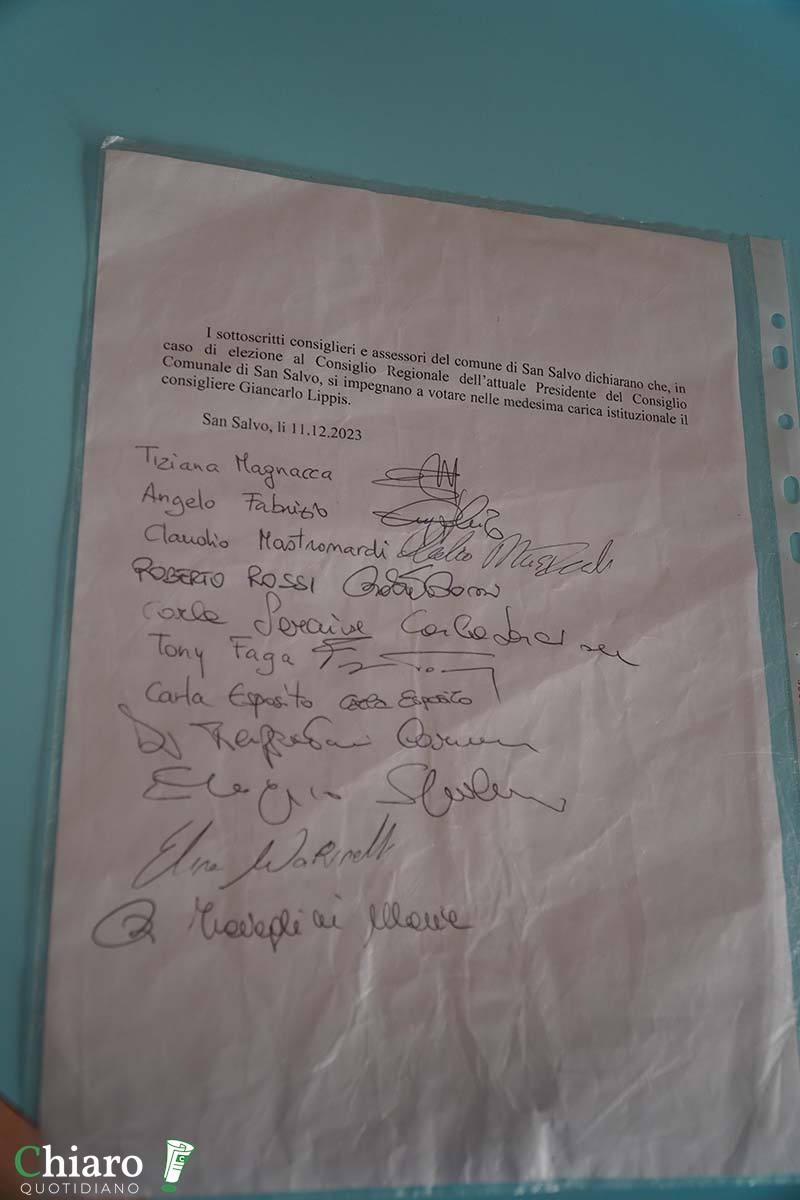 I sottoscritti consiglieri e assessori del comune di San Salvo dichiarano che, in
caso di elezione al Consiglio Regionale dell'attuale Presidente del Consiglio
Comunale di San Salvo, si impegnano a votare nelle medesima carica istituzionale il
consigliere Giancarlo Lippis.
San Salvo, li 11.12.2023
Tiziana Magnacca
Angelo Fabrizio
Claudio Mastronardi
ROBERTO ROSSI
Carla
Tony Faga
Carla Esposito Carla Esposito
Elisa Marinelli
Travaglini Maria
Chiaro
QUOTIDIANO